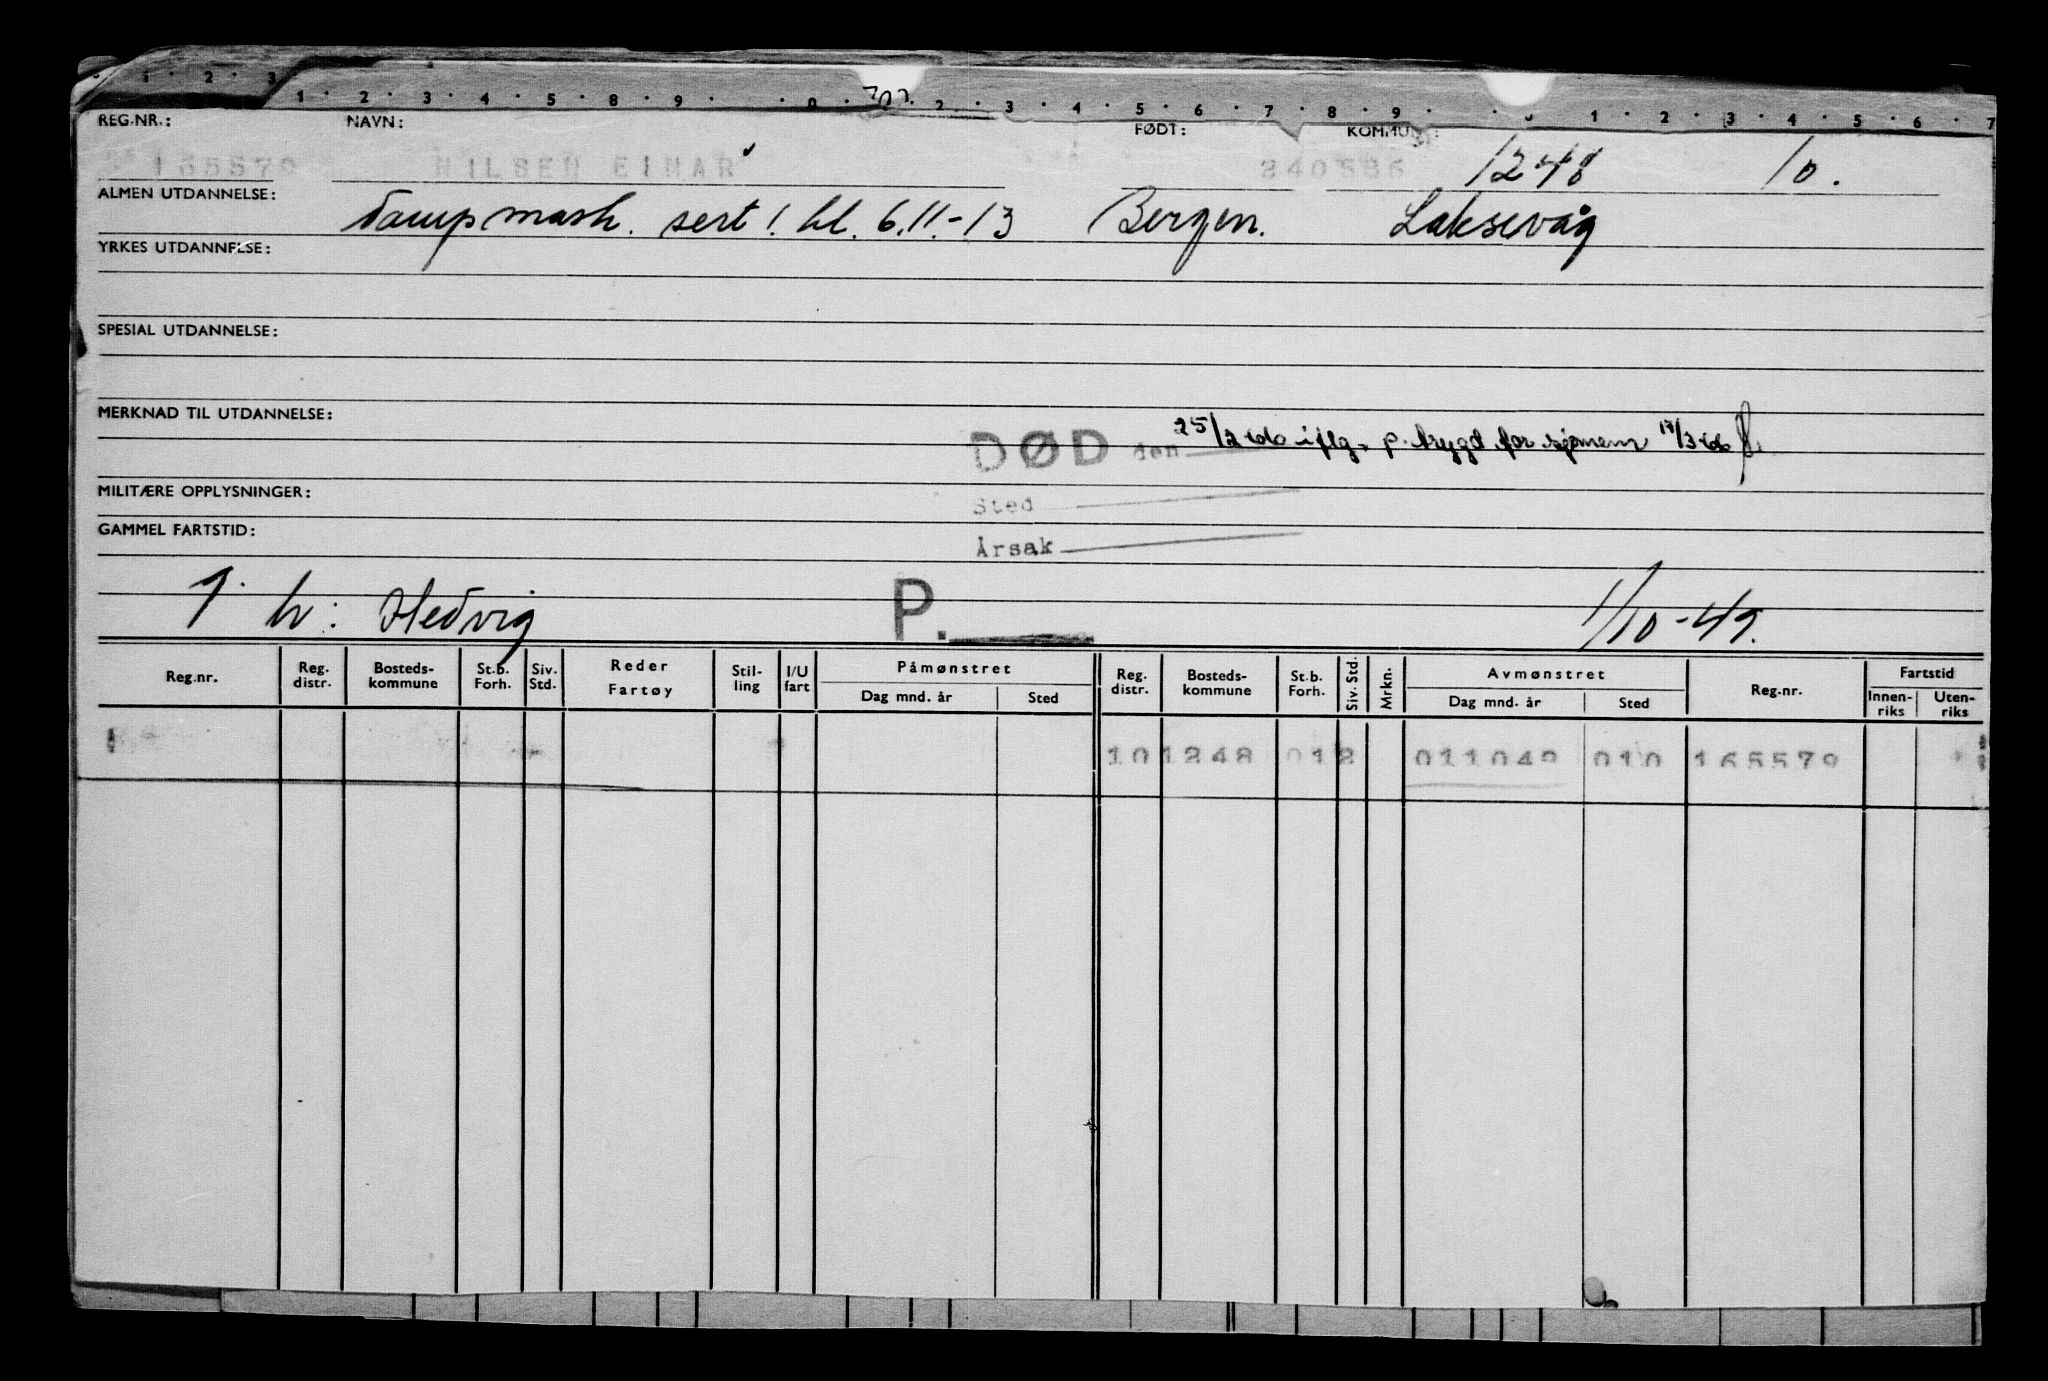 1 2 3
1 2 3 4 5 8 9 0 2 3 4 5 6 7 8 9 1 2 3 4 5 6 7
REG.NR.: NAVN: FØDT: KOMMUNE:
165579 NILSEN EINAR 1248 10.
ALMEN UTDANNELSE: Dampmask. sert 1. kl. 6.11.-13 Bergen. Laksevåg
YRKES UTDANNELSE:
SPESIAL UTDANNELSE:
MERKNAD TIL UTDANNELSE:
DØD den 25/2 66 iflg. p. trygd for sjømenn 17/3-66
MILITÆRE OPPLYSNINGER:
Sted
GAMMEL FARTSTID:
Årsak
h: Hedvig P. 1/10-49.
Reg.nr. Reg. distr. Bosteds-kommune St.b. Forh. Siv. Std. Reder Fartøy Stil-ling I/U fart Påmønstret Dag mnd. år Sted Reg. distr. Bosteds-kommune St.b. Forh. Siv. Std. Mrkn. Avmønstret Dag mnd. år Sted Reg.nr. Fartstid Innen-riks Uten-riks
10 1248 01 2 011049 010 165579